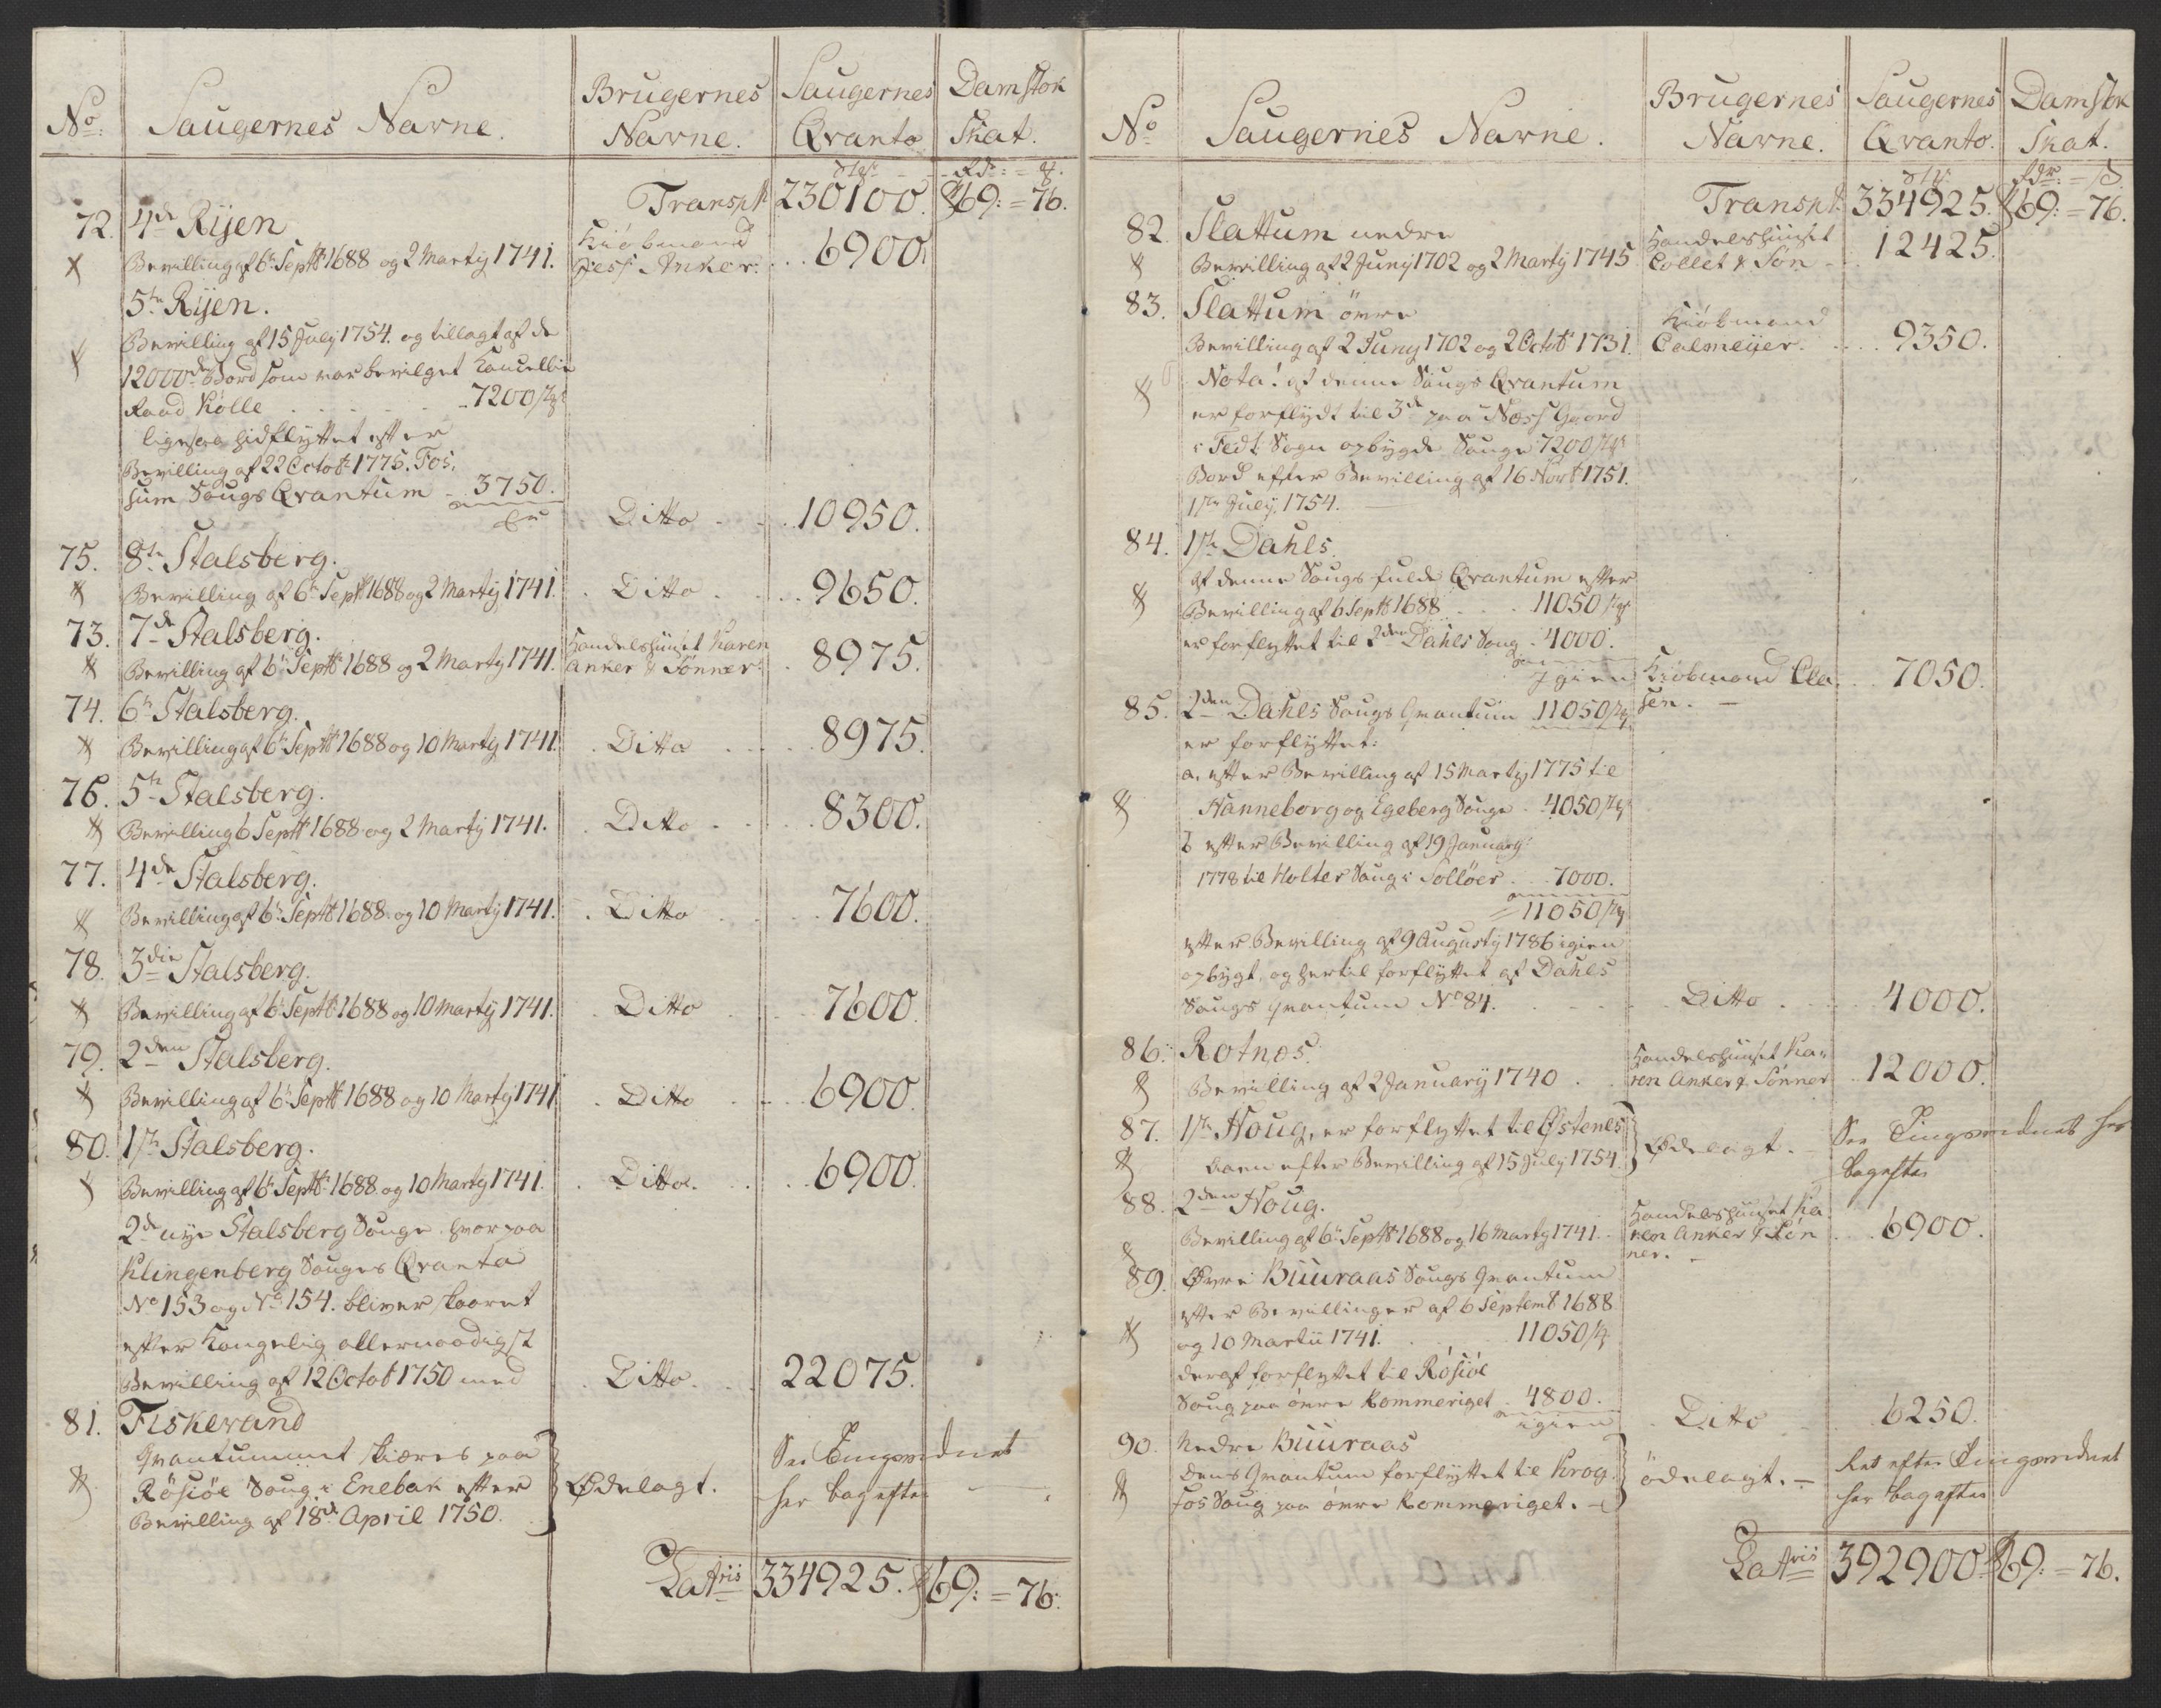 No. Saugernes Navne. Brugernes Navne. Saugernes Qvanto Damstok Skat.
Transpt 230100. 69: = 76.
72. 4de Ryen
Bevilling af 6te Septb 1688 og 2 Martÿ 1741. Kiøbmand Jess Anker. 6900.
5te Ryen.
Bevilling af 15 Julÿ 1754. og tillagt af de
12000de Bord som var bevilget Cancellie
Raad Kølle 7200
ligesaa hidflyttet efter
Bevilling af 22 Octob: 1775. Fos,
sum Saugs Qvantum 3750.
Ditto 10950.
75. 8te Stalsberg.
Bevilling af 6te Sept 1688 og 2 Martÿ 1741. Ditto 9650.
73. 7de Stalsberg.
Bevilling af 6te Septb 1688 og 2 Martÿ 1741. Handelshuuset Karen Anker & Sønner. 8975.
74. 6te Stalsberg.
Bevilling af 6te Septb 1688 og 10 Martÿ 1741. Ditto 8975.
76. 5te Stalsberg.
Bevilling 6 Septb 1688 og 2 Martÿ 1741. Ditto 8300.
77. 4de Stalsberg.
Bevilling af 6te Septb 1688 og 10 Martÿ 1741. Ditto 7600.
78. 3die Stalsberg.
Bevilling af 6te Septb 1688 og 10 Martÿ 1741. Ditto 7600.
79. 2den Stalsberg.
Bevilling af 6te Septb 1688 og 10 Martÿ 1741 Ditto 6900.
80. 1ste Stalsberg.
Bevilling af 6te Septb 1688 og 10 Martÿ 1741. Ditto. 6900.
2de nye Stalsberg Sauge hvorpaa
Klingenberg Sauges Qvanta
No 153 og No 154. bliver skaaret
efter Kongelig allernaadigst
Bevilling af 12 Octob 1750 med Ditto. 22075.
81. Fiskevand
Qvantummet skiæres paa
Røsiøe Saug i Enebak efter
Bevilling af 18de April 1750. Ødelagt. See Tingsvidnet her bagefter
Latris 334925. 69: = 76.
No Saugernes Navne. Brugernes Navne. Saugernes Qvanto. Damstok Skat.
Transpt. 334925. 69: = 76.
82. Slattum nedre
Bevilling af 2 Junÿ 1702 og 2 Martÿ 1745 Handelshuuset Collet & Søn 12425.
83. Slattum öwre
Bevilling af 2 Junÿ 1702 og 2 Octob 1731. Kiøbmand Calmeÿer. 9350.
Nota! af denne Saugs Qvantum
er forflydt til 3de paa Næss Gaard
i Fedt Sogn opbygde Sauge 7200
Bord efter Bevilling af 16 Novb 1751.
1ste Julÿ 1754.
84. 1ste Dahls.
af denne Saugs fulde Qvantum efter
Bevilling af 6 Septb 1688 11050
er forflyttet til 2den Dahls Saug 4000.
Igien Kiøbmand Clasen. 7050.
85. 2den Dahls Saugs Qvantum 11050
er forflyttet:
a, efter Bevilling af 15 Martÿ 1775 til
Hanneborg og Egeberg Sauge 4050
b efter Bevilling af 19 January
1778 til Holter Saug i Solløer 7000.
= 11050
efter Bevilling af 9 Augustÿ 1786 igien
opbygt, og hertil forflyttet af Dahls
Saugs qvantum No 84. Ditto 4000.
86. Rotnes.
Bevilling af 2 Januarÿ 1740. Handelshuuset Karen Anker & Sønner 12000.
87. 1ste Houg, er forflyttet til Østenes
aaen efter Bevilling af 15 Julÿ 1754. Ødelagt. See Tingsvidnet her bagefter
88. 2den Houg.
Bevilling af 6te Septb 1688 og 16 Martÿ 1741. Handelshuuset Karen Anker & Sønner. 6900.
89. Øvre Buuraas Saugs Qvantum
efter Bevillinger af 6 Septemb 1688
og 10 Martii 1741. 11050
deraf forflyttet til Røsiøe
Saug paa övre Rommeriget 4800.
igien Ditto 6250.
90. Nedre Buuraas
Dens Qvantum forflyttet til Krog
fos Saug paa övre Rommeriget. ödelagt. Ret efter Tingsvidnet her bagefter
Latris 392900. 69: = 76.